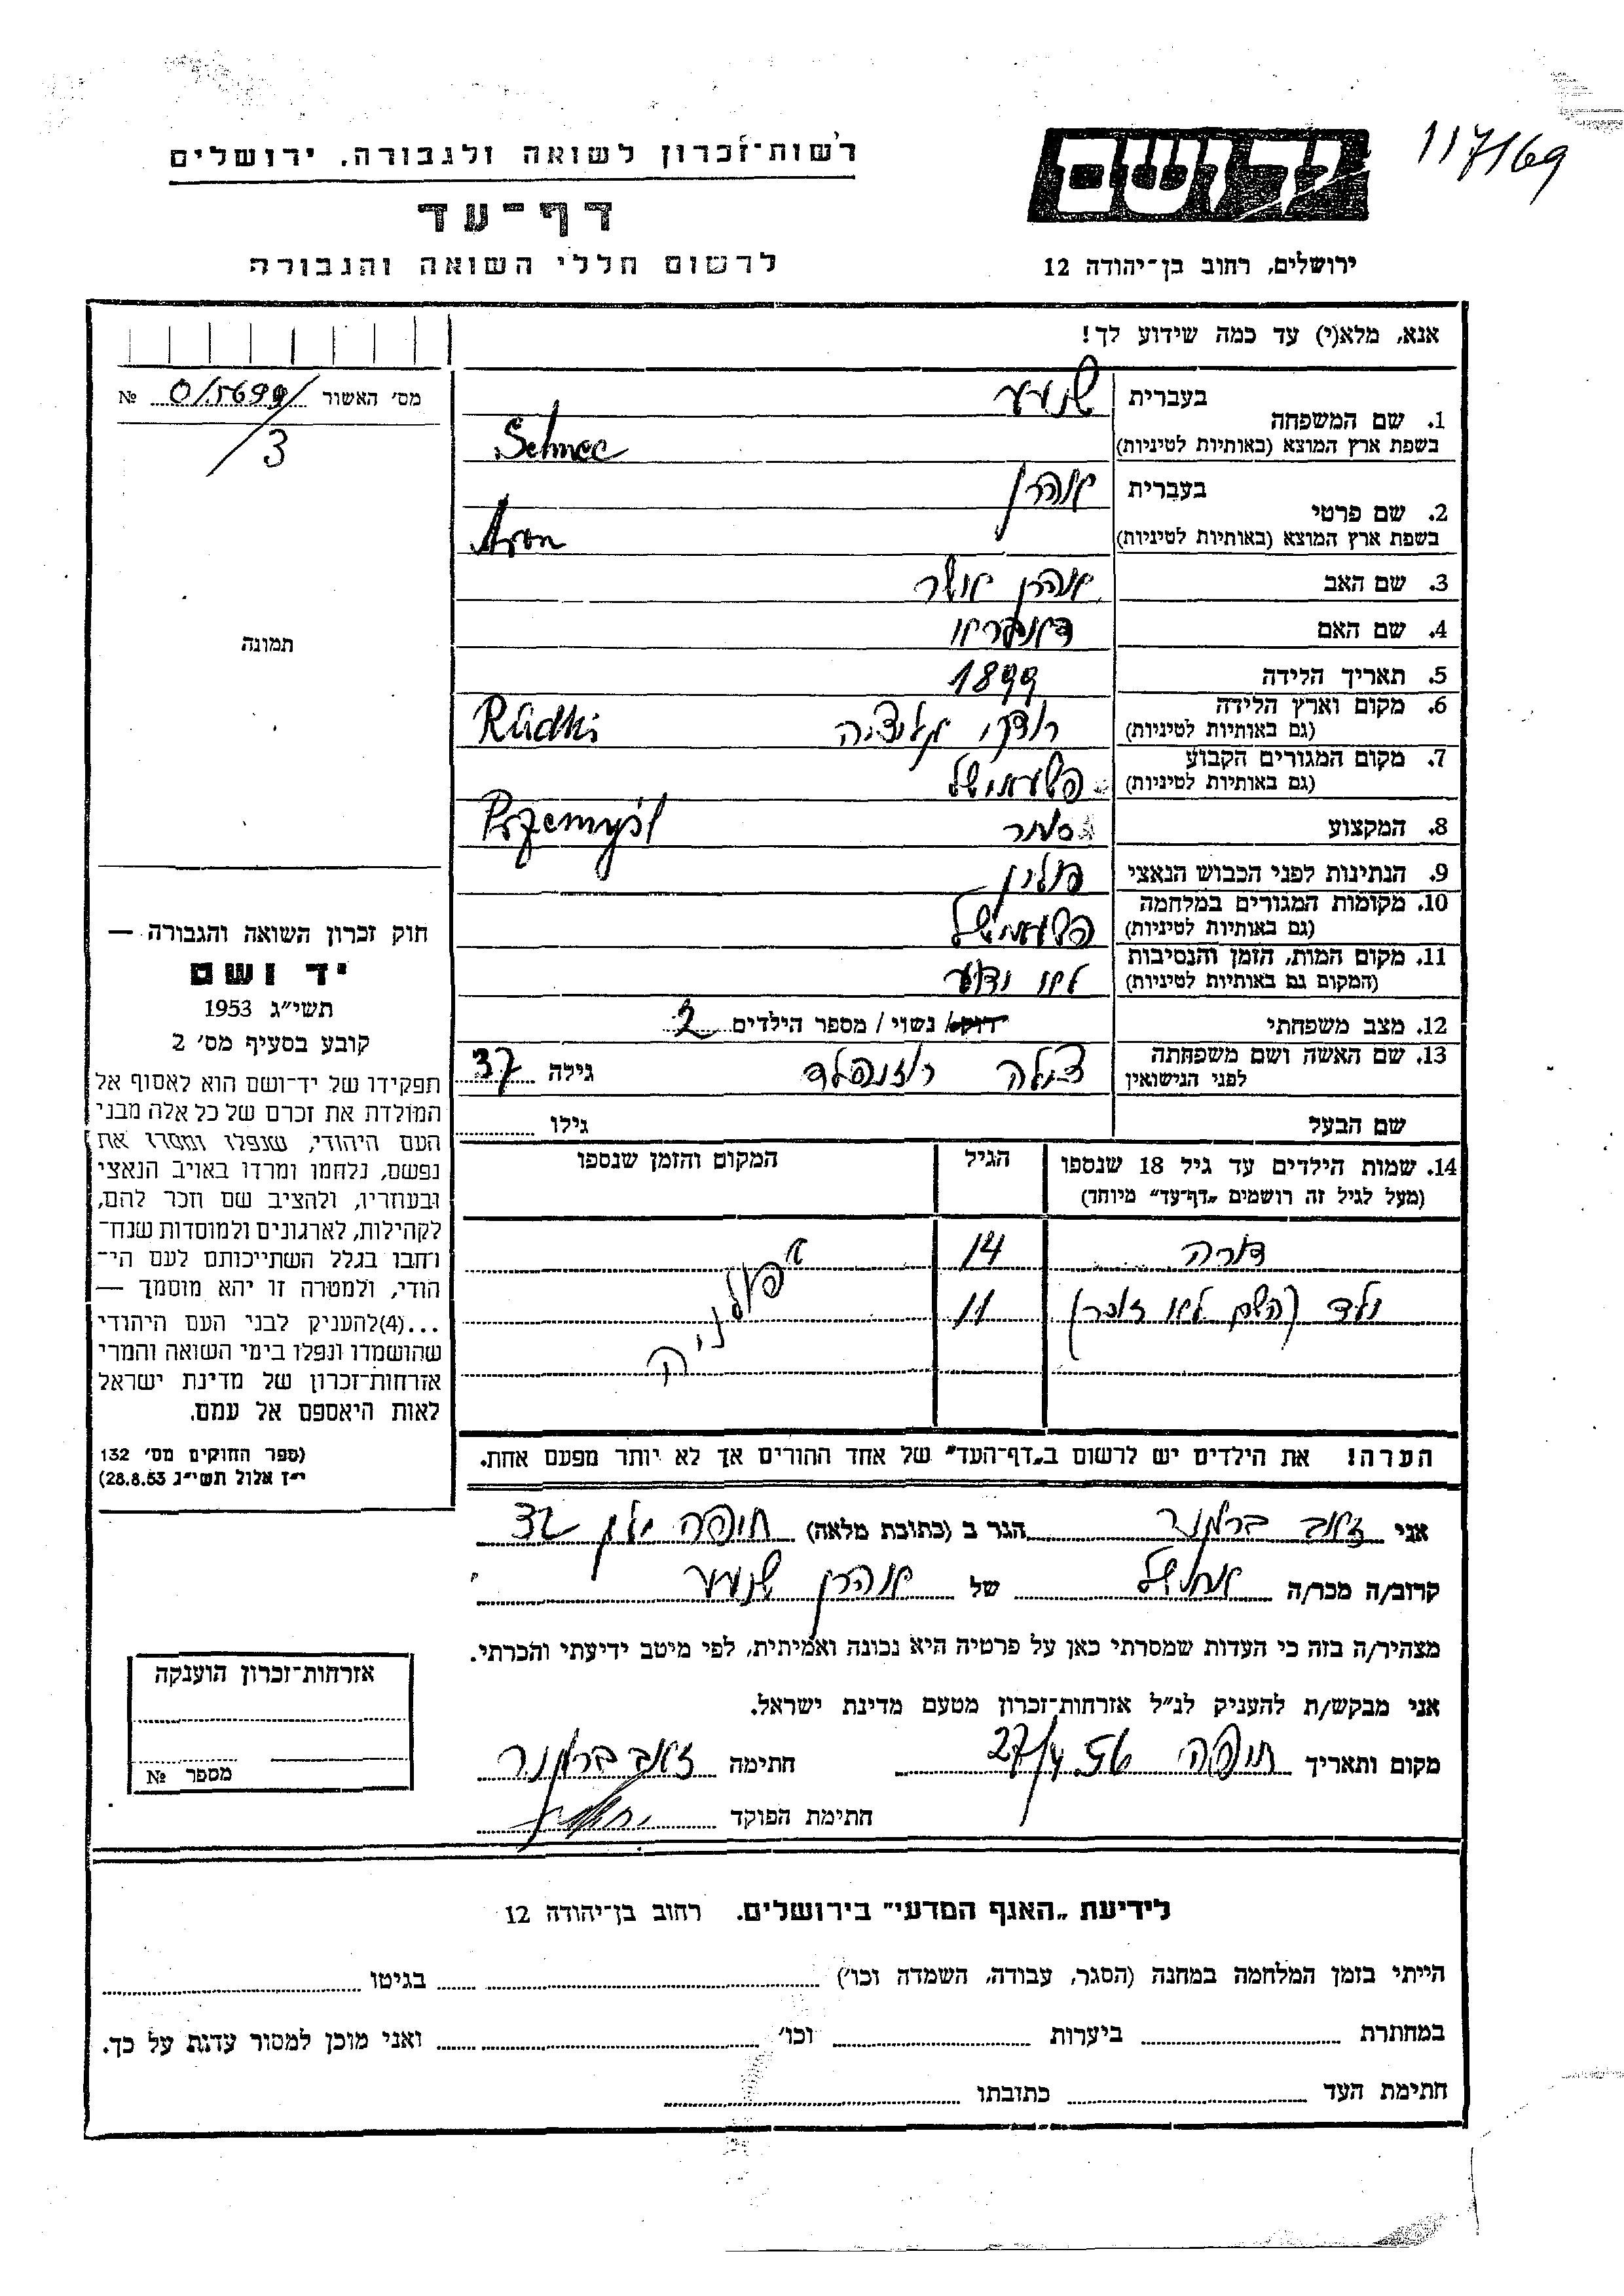 117/69
יד ושם
ירושלים, רחוב בן־יהודה 12
רשות־זכרון לשואה ולגבורה, ירושלים
דף־עד
לרשום חללי השואה והגבורה
אנא, מלא(י) עד כמה שידוע לך!
מס' האשור 0/5699/ №
/3
תמונה
חוק זכרון השואה והגבורה —
יד ושם
תשי״ג 1953
קובע בסעיף מס' 2
תפקידו של יד־ושם הוא לאסוף אל
המולדת את זכרם של כל אלה מבני
העם היהודי, שנפלו ומסרו את
נפשם, נלחמו ומרדו באויב הנאצי
ובעוזריו, ולהציב שם וזכר להם,
לקהילות, לארגונים ולמוסדות שנח־
רחבו בגלל השתייכותם לעם הי־
הודי, ולמטרה זו יהא מוסמך —
...(4)להעניק לבני העם היהודי
שהושמדו ונפלו בימי השואה והמרי
אזרחות־זכרון של מדינת ישראל
לאות היאספם אל עמם.
(ספר החוקים מס' 132
י״ז אלול תשי״ג 28.8.53)
1. שם המשפחה
בעברית
בשפת ארץ המוצא (באותיות לטיניות) Schnee
2. שם פרטי
בעברית אהרן
בשפת ארץ המוצא (באותיות לטיניות) Aron
3. שם האב אהרן אשר
4. שם האם
5. תאריך הלידה 1899
6. מקום וארץ הלידה רודקי גליציה Rudki
(גם באותיות לטיניות)
7. מקום המגורים הקבוע פשעמישל
(גם באותיות לטיניות) Przemyśl
8. המקצוע סוחר
9. הנתינות לפני הכבוש הנאצי פולין
10. מקומות המגורים במלחמה פשעמישל
(גם באותיות לטיניות)
11. מקום המות, הזמן והנסיבות לא ידוע
(המקום גם באותיות לטיניות)
12. מצב משפחתי רווק/ נשוי / מספר הילדים 2
13. שם האשה ושם משפחתה צילה רוזנפלד גילה 37
לפני הנישואין
שם הבעל גילו
14. שמות הילדים עד גיל 18 שנספו הגיל המקום והזמן שנספו
(מעל לגיל זה רושמים „דף־עד” מיוחד)
דורה 14
ילד (השם לא זוכר) 11
פולניה
הערה! את הילדים יש לרשום ב„דף־העד” של אחד ההורים אך לא יותר מפעם אחת.
אני זאב ברקנר הגר ב (כתובת מלאה) חיפה 32
קרוב/ה מכר/ה של אהרן
מצהיר/ה בזה כי העדות שמסרתי כאן על פרטיה היא נכונה ואמיתית, לפי מיטב ידיעתי והכרתי.
אני מבקש/ת להעניק לנ״ל אזרחות־זכרון מטעם מדינת ישראל.
מקום ותאריך חיפה 56 חתימה זאב ברקנר
חתימת הפוקד
אזרחות־זכרון הוענקה
מספר №
לידיעת „האגף המדעי” בירושלים. רחוב בן־יהודה 12
הייתי בזמן המלחמה במחנה (הסגר, עבודה, השמדה וכו') בגיטו
במחתרת ביערות וכו' ואני מוכן למסור עדות על כך.
חתימת העד כתובתו